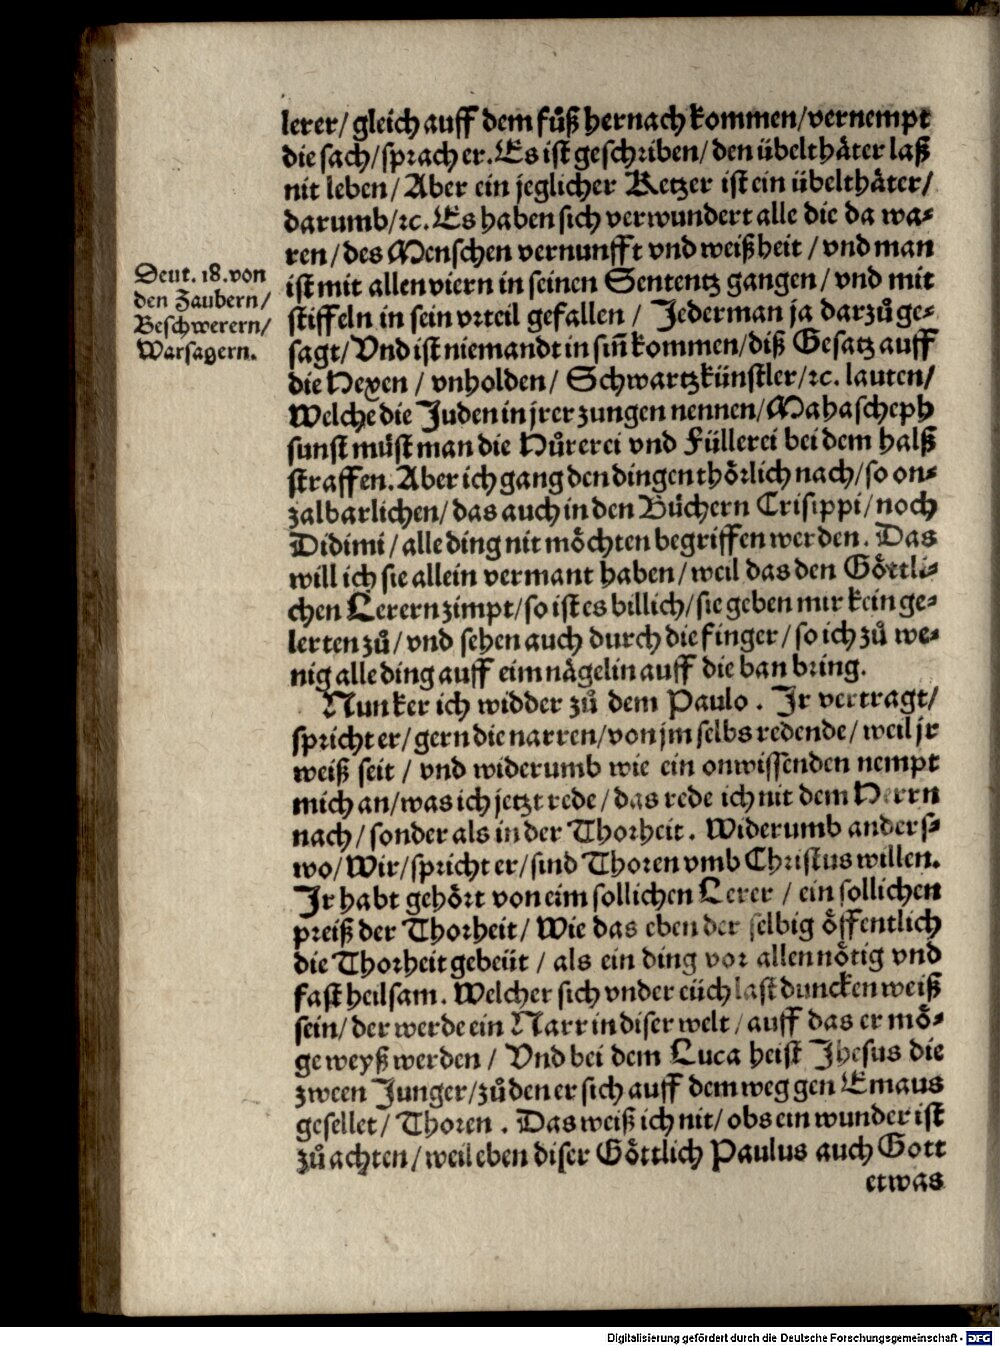 lerer/ gleich auff dem fůß hernach kommen/ vernempt
die sach/ sprach er. Es ist geschriben/ den übelthäter laß
nit leben/ Aber ein jeglicher Ketzer ist ein übelthäter/
darumb/ ꝛc. Es haben sich verwundert alle die da wa⸗
ren/ des Menschen vernunfft vnd weißheit/ vnd man
ist mit allen viern in seinen Sententz gangen/ vnd mit
stiffeln in sein vrteil gefallen/ Jederman ja darzů ge⸗
sagt/ Vnd ist niemandt in siñ kommen/ diß Gesatz auff
die Hexen/ vnholden/ Schwartzkünstler/ ꝛc. lauten/
Welche die Juden in jrer zungen nennen/ Mahascheph
sunst můst man die Hůrerei vnd Füllerei bei dem halß
straffen. Aber ich gang den dingen thörlich nach/ so on⸗
zalbarlichen/ das auch in den Büchern Crisippi/ noch
Didimi/ alle ding nit möchten begriffen werden. Das
will ich sie allein vermant haben/ weil das den Göttli⸗
chen Lerern zimpt/ so ist es billich/ sie geben mir kein ge⸗
lerten zů/ vnd sehen auch durch die finger/ so ich zů we⸗
nig alle ding auff eim nägelin auff die ban bring.
Nun ker ich widder zů dem Paulo. Jr vertragt/
spricht er/ gern die narren/ von jm selbs redende/ weil jr
weiß seit/ vnd widerumb wie ein onwissenden nempt
mich an/ was ich jetzt rede/ das rede ich nit dem Herrn
nach/ sonder als in der Thorheit. Widerumb anders⸗
wo/ Wir/ spricht er/ sind Thoren vmb Christus willen.
Jr habt gehört von eim sollichen Lerer/ ein sollichen
preiß der Thorheit/ Wie das eben der selbig öffentlich
die Thorheit gebeüt/ als ein ding vor allen nötig vnd
fast heilsam. Welcher sich vnder eüch last duncken weiß
sein/ der werde ein Narr in diser welt/ auff das er mö⸗
ge weyß werden/ Vnd bei dem Luca heist Jhesus die
zween Junger/ zů den er sich auff dem weg gen Emaus
gesellet/ Thoren. Das weiß ich nit/ obs ein wunder ist
zů achten/ weil eben diser Göttlich Paulus auch Gott
etwas
Deut. 18. von
den Zaubern/
Beschwerern/
Warsagern.
Digitalisierung gefördert durch die Deutsche Forschungsgemeinschaft - DFG